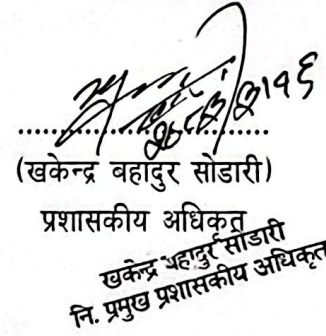 (खकेन्द्र बहादुर सोडारी)
प्रशासकीय अधिकृत
खकेन्द्र बहादुर सोडारी
नि. प्रमुख प्रशासकीय अधिकृत